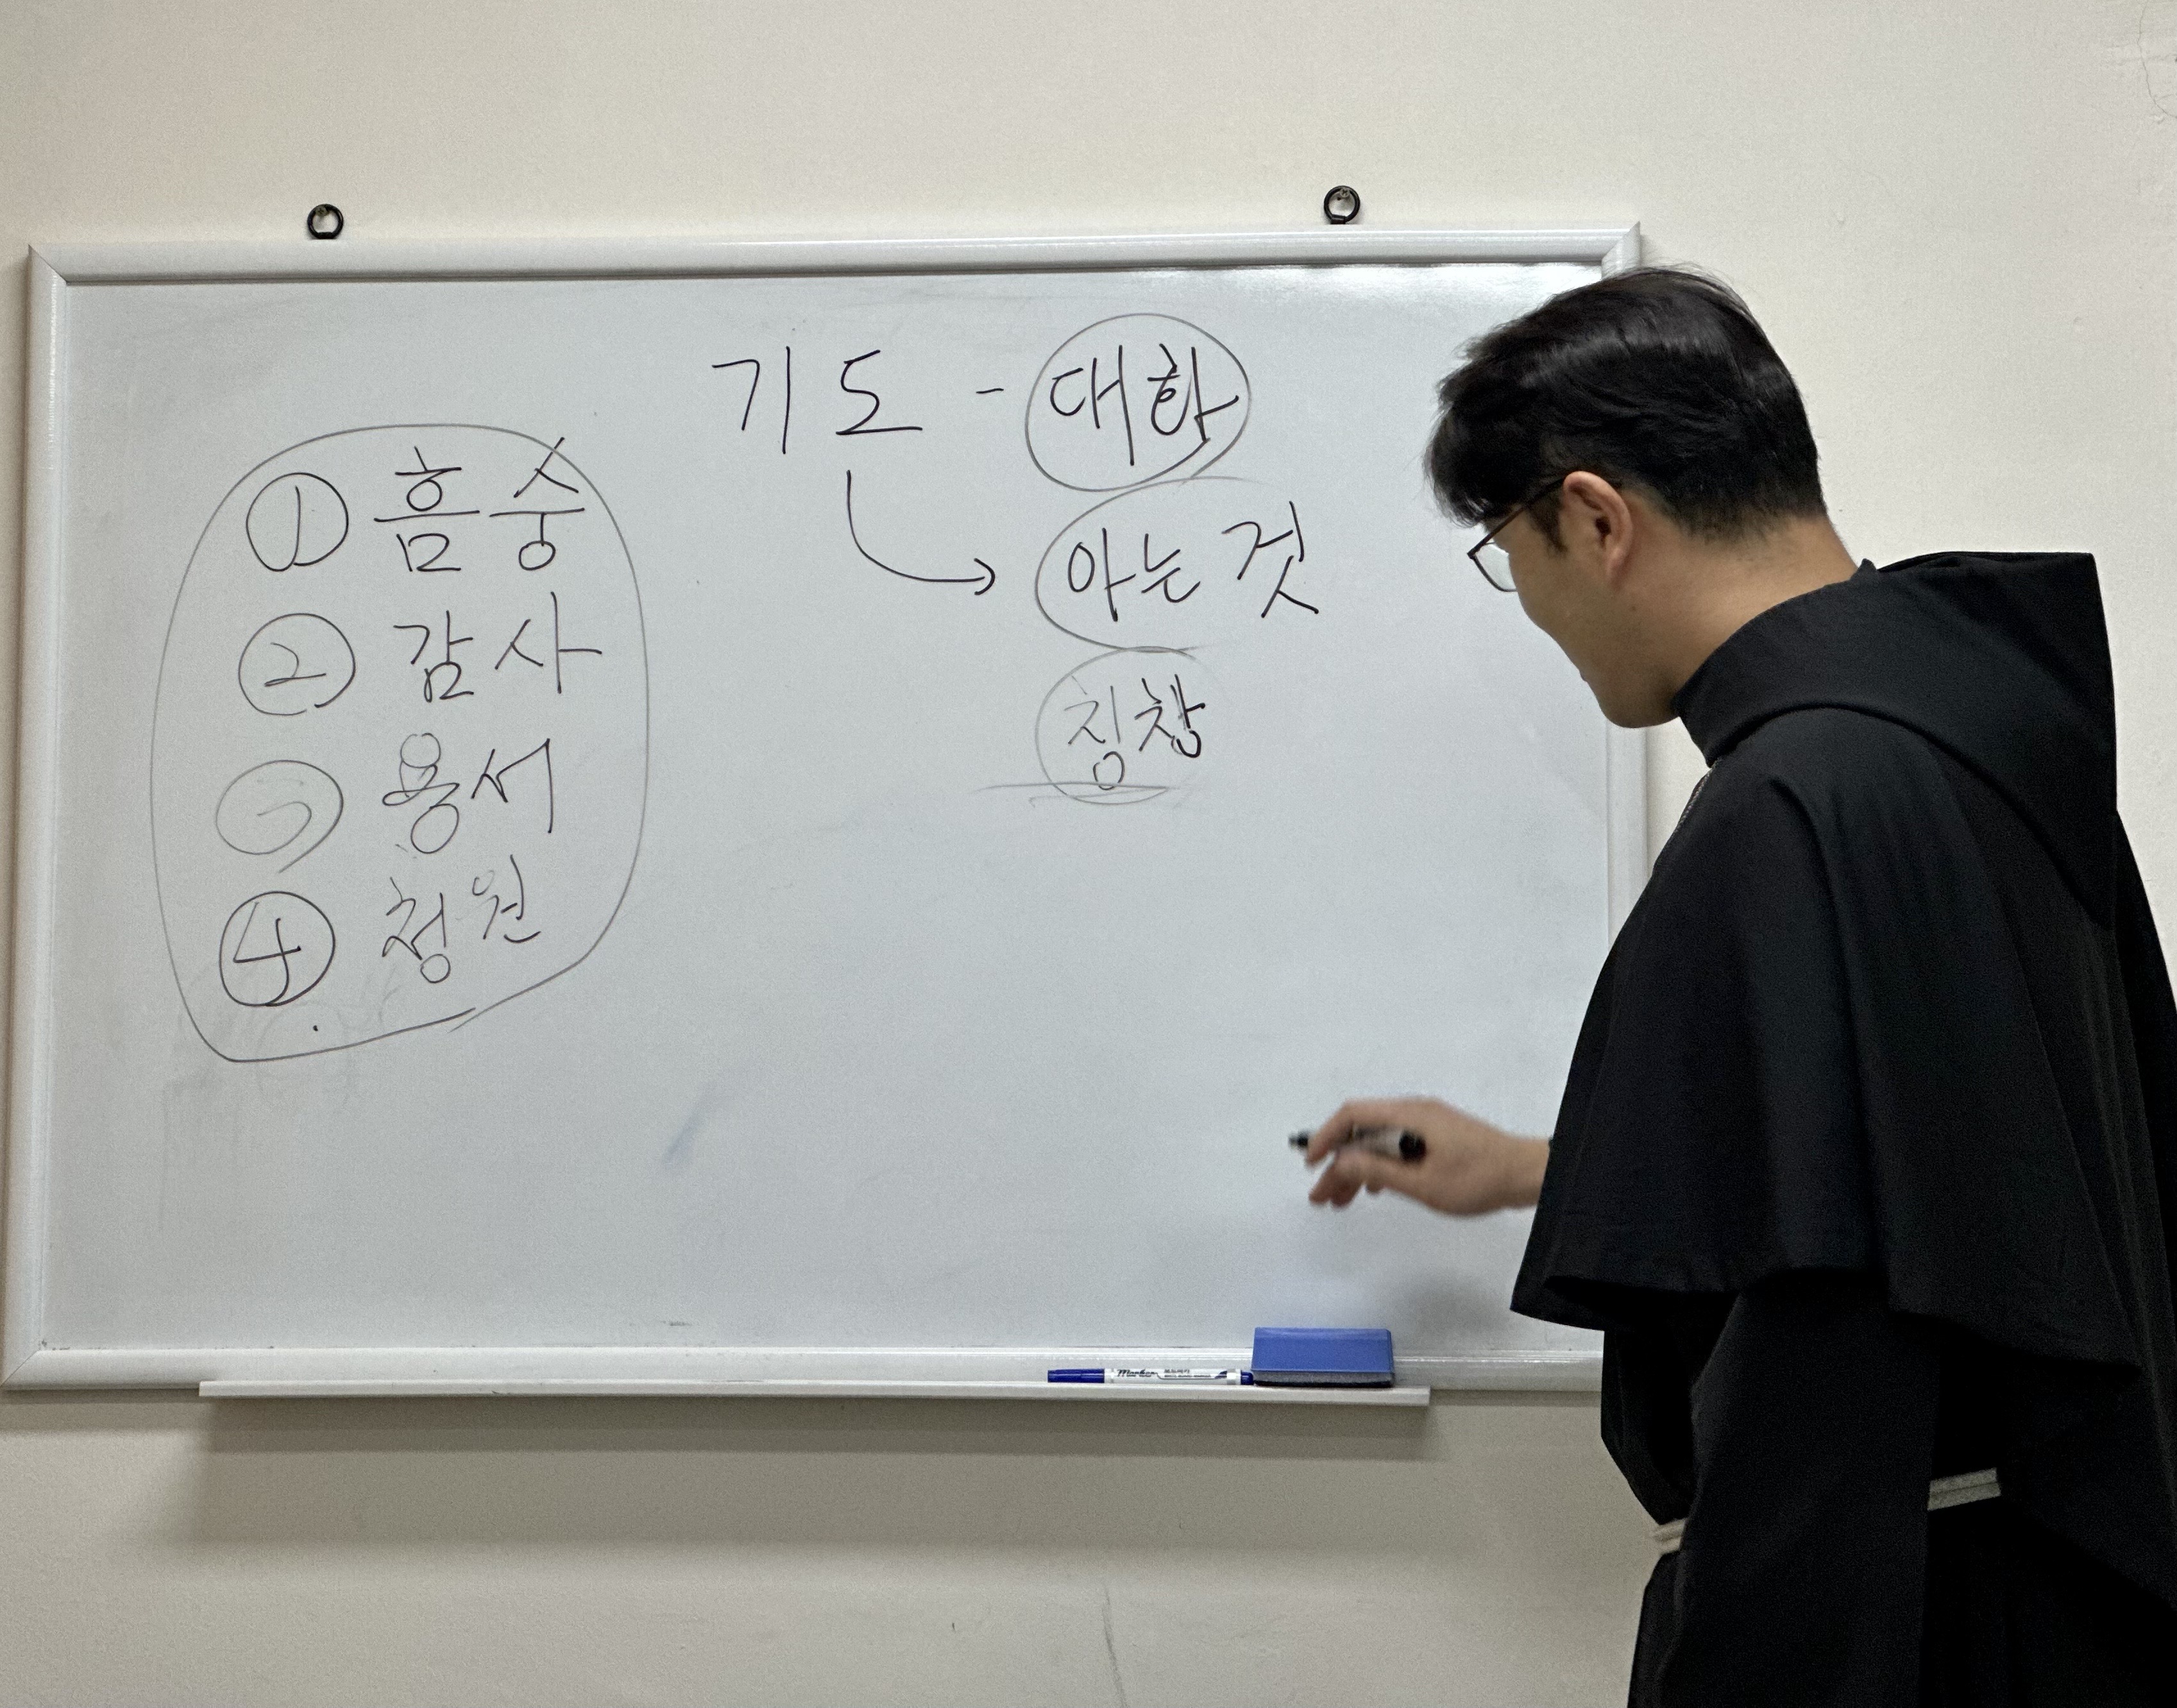 기도 - 대화
아는 것
칭찬
① 흠숭
② 감사
③ 용서
④ 청원